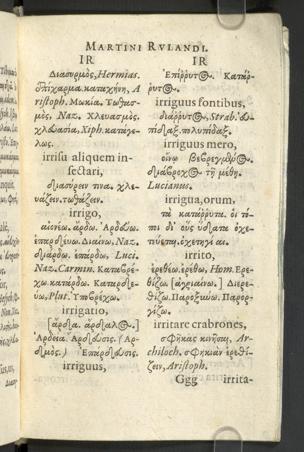 MARTINI RVLANDI.
IR
Διασυρμὸς, Hermias.
ἐπίχαρμα. καταχήνη, A
ristoph. Μωκία. Τωθασ-
μὸς, Naz. Χλευασμὸς.
χλευασία, Xiph. κατάγε-
λως.
irrisu aliquem in-
sectari,
διασύρειν τινα. χλε-
υάζειν. τωθάζειν.
irrigo,
αἰονέω. ἄρδω. Ἀρδεύω.
ἐπαρδεύω. Διαίνω, Naz.
διάρδω. ἐπάρδω, Luci.
Naz. Carmin. Καταβρέ-
χω. κατάρδω. Καταρδε-
ύω, Plat. Ὑποβρέχω.
irrigatio,
[ἀρδία. ἀρδαλος.]
Ἀρδεία. Ἄρδευσις. (Ἀρ-
δμὸς.) Ἐπάρδευσις.
irriguus,
IR
Ἐπίρρυτος. Κατάρ-
ρυτος.
irriguus fontibus,
διάρρυτος, Strab.
πίδαξ. πολυπίδαξ.
irriguus mero,
οἴνῳ βεβρεγμένος.
διάβροχος τῇ μέθῃ.
Lucianus.
irrigua, orum,
τὰ κατάρρυτα. οἱ τό-
ποι δι' οὓς ὕδατα ὀχε-
τεύεται. ὀχετηγίαι.
irrito,
ἐρεθέω. ἐρέθω, Hom. Ἐρε-
θίζω. [ἀγριαίνω.] Διερε-
θίζω. Παροξύνω. Παρορ-
γίζω.
irritare crabrones,
σφῆκας κινῆσαι, Ar-
chiloch. σφηκιὰν ἐρεθί-
ζειν, Aristoph.
Ggg irrita-